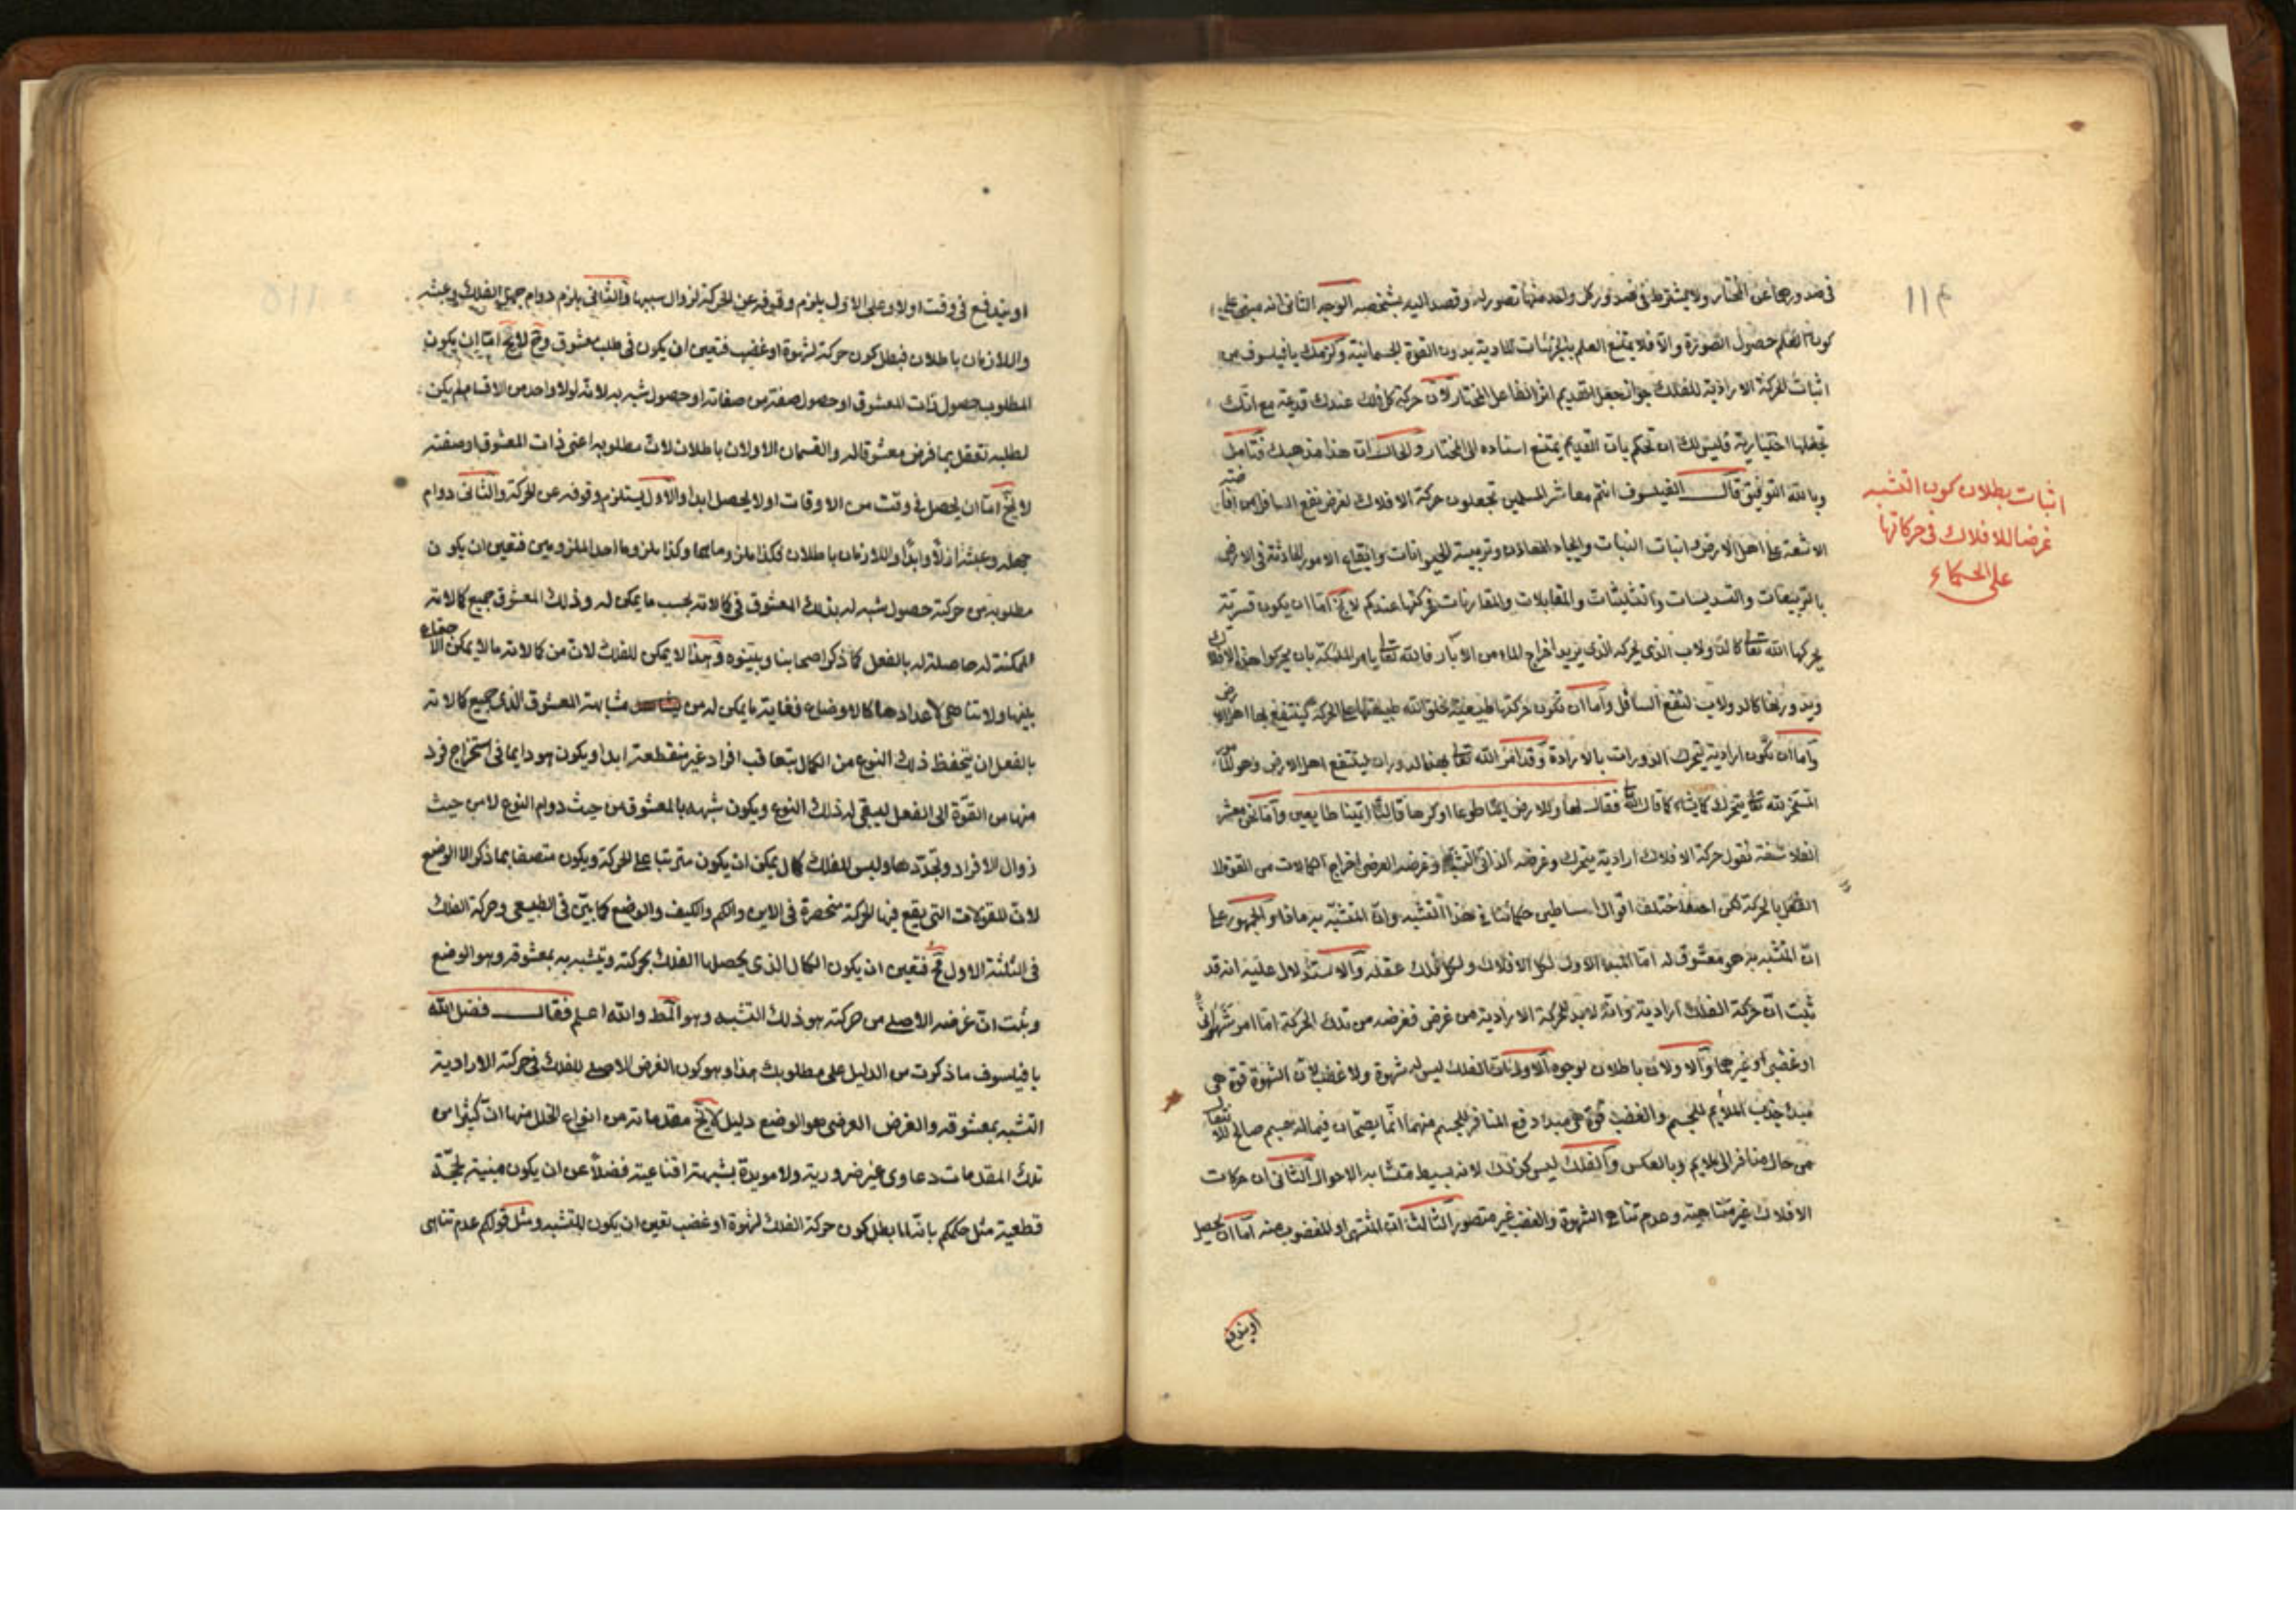 ١١٤
في صدورهما عن المختار ولا يشترط في صدور كل واحد منها تصوره وقصد اليه بشخصه الوجه الثاني انه مبني على
كون العلم حصول الصورة والا فلا يمتنع العلم بالجزئيات المادية بدون القوة الجسمانية ولزمك يا فيلسوف من
اثبات الحركة الارادية للفلك جواز جعل القديم اثر الفاعل المختار لان حركة كل فلك عندك قديمة مع انك
تجعلها اختيارية فليس لك ان تحكم بان القديم يمتنع استناده الى المختار والحال ان هذا مذهبك فتامل
وبالله التوفيق قال الفيلسوف انتم معاشر المسلمين تجعلون حركة الافلاك لغرض نفع السافل من افاضة
الاشعة على اهل الارض وانبات النبات وايجاد المعادن وتربية الحيوانات وايقاع الامور الحادثة في الارض
بالتربيعات والتسديسات والتثليثات والمقابلات والمقارنات فحركتها عندكم لا يخ اما ان يكون قسرية
يحركها الله تعا كالدولاب الذي يحركه الذي يريد اخراج الماء من الآبار فالله تعا يامر الملئكة بان يحركوا هذه الافلاك
ويدورنها كالدولاب لنفع السافل واما ان تكون حركتها طبيعية بخلق الله طبيعتها على الحركة لينتفع بها اهل الارض
واما ان تكون ارادية يتحرك الدورات بالارادة وقد امر الله تعا بهذا الدوران لينتفع اهل الارض وهو
المسخر لله تعا يتحرك كما يشاء كما قال الله تعا فقال لها وللارض ائتيا طوعا او كرها قالتا اتينا طايعين واما نحن معشر
الفلاسفة نقول حركة الافلاك ارادية يتحرك وغرضه الذاتي التشبه وغرضه العرضي اخراج الكمالات من القوة الى
الفعل بالحركة لكن اختلف اقوال اساطين حكمائنا في هذا التشبه وان المتشبه به ماذا والجمهور على
ان المتشبه به هو معشوق له اما المبدا الاول لكل الافلاك ولكل فلك عقله والاستدلال عليه انه قد
ثبت ان حركة الفلك ارادية وانه لابد للحركة الارادية من غرض فغرضه من تلك الحركة اما امر شهواني
او غضبي او غيرهما والاولان باطلان لوجوه الاول ان الفلك ليس له شهوة ولا غضب لان الشهوة قوة هي
مبدا جذب الملايم للجسم والغضب قوة هي مبدا دفع المنافر للجسم منهما انما يصحان فيما له جسم صالح للانتقال
من حال منافر الى ملايم وبالعكس والفلك ليس كذلك لانه بسيط متشابه الاحوال الثاني ان حركات
الافلاك غير متناهية وعدم تناهي الشهوة والغضب غير متصور الثالث ان المشتهى او المغضوب منه اما ان يحصل
او يندفع
اثبات بطلان كون التشبه
غرضا للافلاك في حركاتها
على الحكماء
او يندفع في وقت اولا وعلى الاول يلزم وقوفه عن الحركة لزوال سببها والثاني يلزم دوام جهل الفلك وعبثه
واللازمان باطلان فبطل كون حركة لشهوة او غضب فتعين ان يكون في طلب معشوق وح لا يخ اما ان يكون
المطلوب حصول ذات المعشوق او حصول صفة من صفاته او حصول شبه به لانه لولا واحد من الاقسام لم يكن
لطلبه تعقل بما فرض معشوقا له والقسمان الاولان باطلان لان مطلوبه اعني ذات المعشوق او صفته
لا يخ اما ان يحصل في وقت من الاوقات اولا يحصل ابدا والاول يستلزم وقوفه عن الحركة والثاني دوام
جهله وعبثه ازلا وابدا واللازمان باطلان فكذا ملزوماهما وكذا ملزوما احد الملزومين فتعين ان يكون
مطلوبه من حركة حصول شبه له بذلك المعشوق في كمالاته بحسب ما يمكن له وذلك المعشوق جميع كمالاته
الممكنة له حاصلة له بالفعل كما ذكر اصحابنا وبينوه وهذا لا يمكن للفلك لان من كمالاته ما لا يمكن الاجتماع
بينها ولا تناهي لاعدادها كالاوضاع فغاية ما يمكن له من مشابهة المعشوق الذي جميع كمالاته
بالفعل ان يتحفظ ذلك النوع من الكمال بتعاقب افراد غير منقطعة ابدا ويكون هو دايما في استخراج فرد
منها من القوة الى الفعل ليبقى له ذلك النوع ويكون شبهه بالمعشوق من حيث دوام النوع لا من حيث
زوال الافراد وتجددها وليس للفلك كمال يمكن ان يكون مترتبا على الحركة ويكون متصفا بما ذكر الا الوضع
لان المقولات التي يقع فيها الحركة منحصرة في الاين والكم والكيف والوضع كما بين في الطبيعي وحركة الفلك
في الثلثة الاول مح فتعين ان يكون الكمال الذي يحصلها الفلك بحركته ويتشبه به بمعشوقه وهو الوضع
وثبت ان غرضه الاصلي من حركته هو ذلك التشبه وهو المط والله اعلم فقال فضل الله
يا فيلسوف ما ذكرت من الدليل على مطلوبك هذا وهو كون الغرض الاصلي للفلك في حركة الارادية
التشبه بمعشوقه والغرض العرضي هو الوضع دليل لا يخ مقدماته من انواع الخلل منها ان كثيرا من
تلك المقدمات دعاوى غير ضرورية ولا مويدة بشبهة اقناعية فضلا عن ان يكون مبنية بحجة
قطعية مثل حكمكم بانه لما بطل كون حركة الفلك لشهوة او غضب تعين ان يكون للتشبه ومثل قولكم عدم تناهي